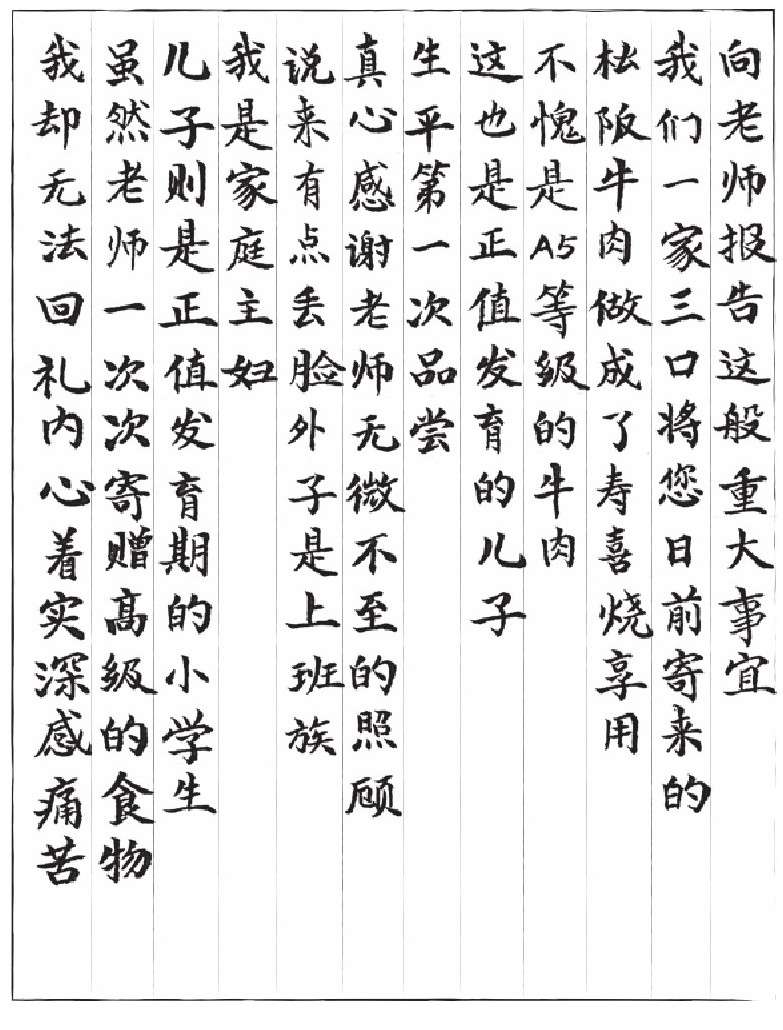 向老师报告这般重大事宜
我们一家三口将您日前寄来的
松阪牛肉做成了寿喜烧享用
不愧是A5等级的牛肉
这也是正值发育的儿子
生平第一次品尝
真心感谢老师无微不至的照顾
说来有点丢脸外子是上班族
我是家庭主妇
儿子则是正值发育期的小学生
虽然老师一次次寄赠高级的食物
我却无法回礼内心着实深感痛苦